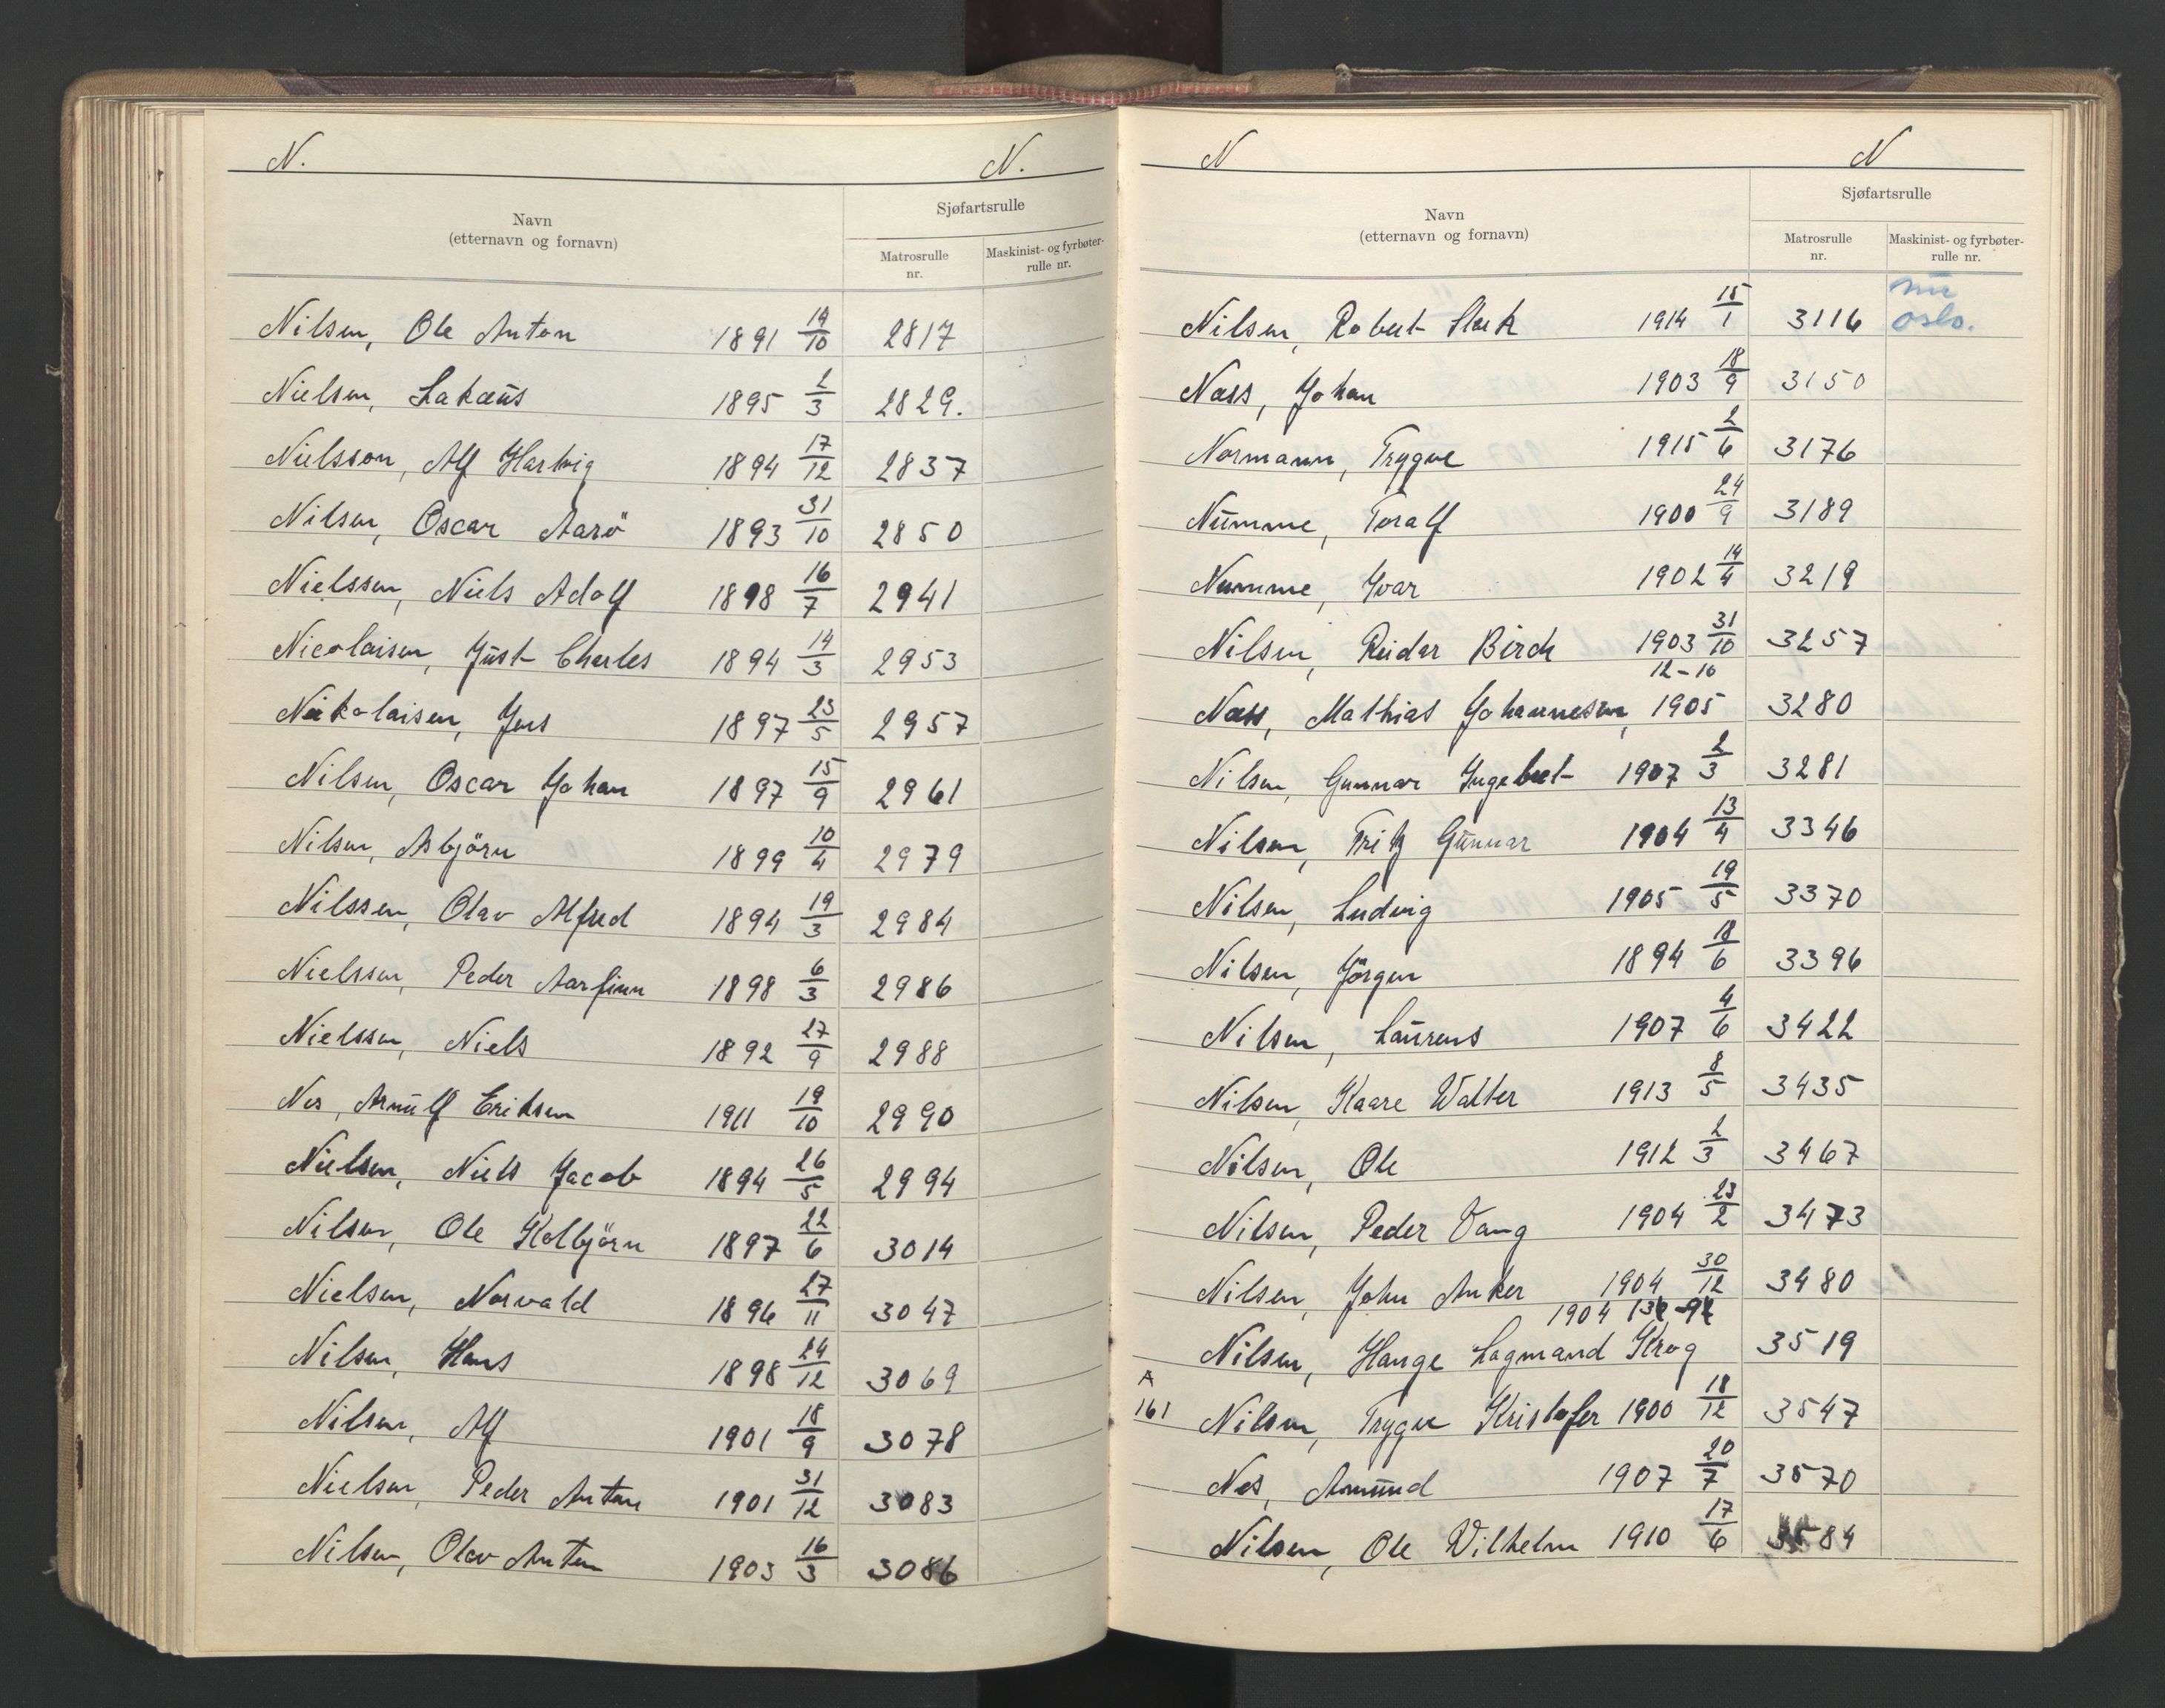 N. N.
Navn
(etternavn og fornavn)
Sjøfartsrulle
Matrosrulle
nr.
Maskinist- og fyrbøter-
rulle nr.
Nilsen, Ole Anton 1891 14/10 2817
Nielsen, Lakæus 1895 2/3 2829.
Nielsson, Alf Hartvig 1894 17/12 2837
Nilsen, Oscar Aarö 1893 31/10 2850
Nielssen, Niels Adolf 1898 16/7 2941
Nicolaisen, Just Charles 1894 14/3 2953
Nikolaisen, Jens 1897 23/5 2957
Nilsen, Oscar Johan 1897 15/9 2961
Nilsen, Asbjörn 1899 10/4 2979
Nilssen, Olav Alfred 1894 19/3 2984
Nielssen, Peder Aarfinn 1898 6/3 2986
Nielssen, Niels 1892 27/9 2988
Nes, Arnulf Eriksen 1911 19/10 2990
Nielsen, Niels Jacob 1894 26/5 2994
Nilsen, Ole Kolbjörn 1897 22/6 3014
Nielsen, Norvald 1896 27/11 3047
Nilsen, Hans 1898 24/12 3069
Nilsen, Alf 1901 18/9 3078
Nielsen, Peder Anton 1901 31/12 3083
Nilsen, Olav Anton 1903 16/3 3086
N N
Navn
(etternavn og fornavn)
Sjøfartsrulle
Matrosrulle
nr.
Maskinist- og fyrbøter-
rulle nr.
Nilsen, Robert 1914 15/1 3116 nu
oslo.
Næss, Johan 1903 18/9 3150
Normann, Trygve 1915 2/6 3176
Numme, Toralf 1900 24/9 3189
Numme, Ivar 1902 14/4 3219
Nilsen, Reidar Birch 1903 31/10 3257
12-10
Næss, Mathias Johannesen, 1905 3280
Nilsen, Gunnar Ingebret 1907 2/3 3281
Nilsen, Fritz Gunnar 1904 13/4 3346
Nilsen, Ludvig 1905 19/5 3370
Nilsen, Jörgen 1894 18/6 3396
Nilsen, Laurens 1907 4/6 3422
Nilsen, Kaare Walter 1913 8/5 3435
Nilsen, Ole 1912 2/3 3467
Nilsen, Peder Vang 1904 23/2 3473
Nilsen, John Anker 1904 30/12 3480
1904
Nilsen, Hauge Lagmand Krog 3519
A
161 Nilsen, Trygve Kristofer 1900 18/12 3547
Nes, Amund 1907 20/7 3570
Nilsen, Ole Wilhelm 1910 17/6 3584